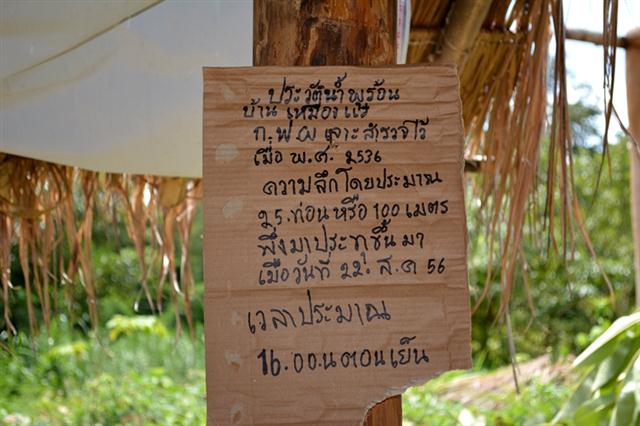 ประวัติน้ำพุร้อน
บ้านเหมืองแร่
ก.ฟ.ผ เจาะสำรวจไว้
เมื่อ พ.ศ. 2536
ความลึกโดยประมาณ
25.ท่อนหรือ 100 เมตร
พึ่งมาประทุขึ้นมา
เมื่อวันที่ 22. ส.ค 56
เวลาประมาณ
16.00.น ตอนเย็น